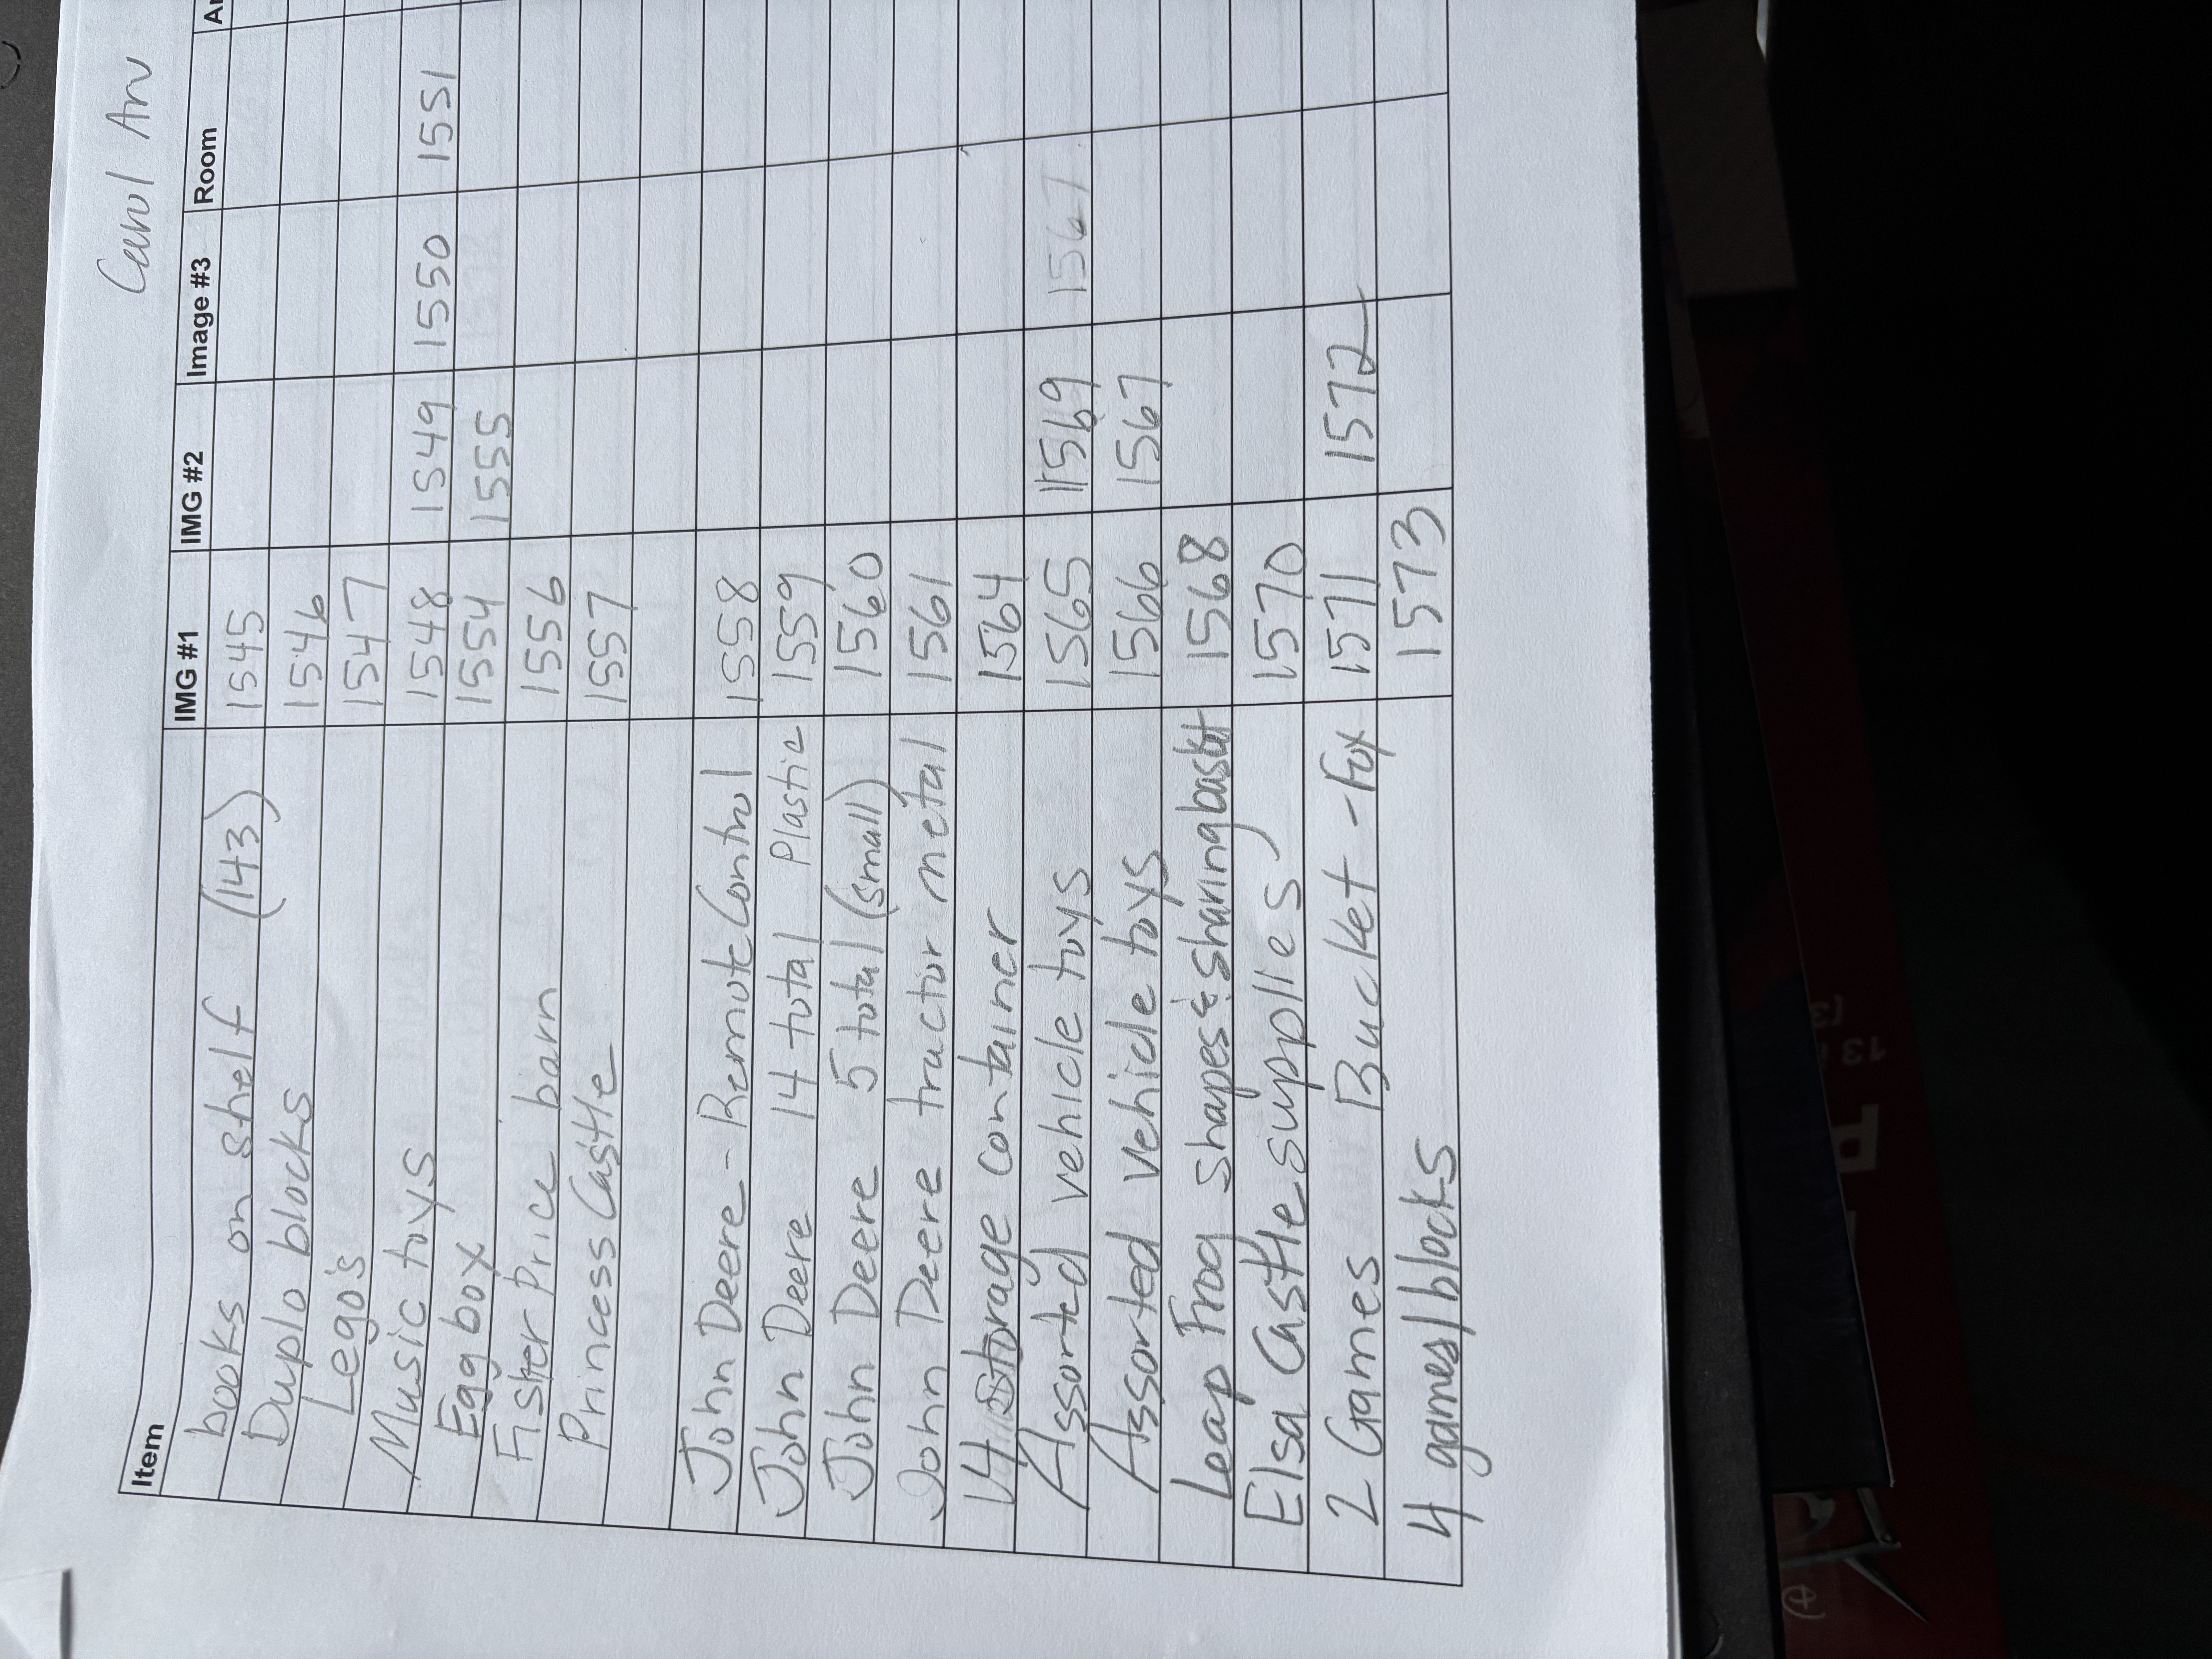 Carol Ann
Item IMG #1 IMG #2 Image #3 Room
books on shelf (143) 1545
Duplo blocks 1546
Lego's 1547
Music toys 1548 1549 1550 1551
Egg box 1554 1555
Fisher Price barn 1556
Princess Castle 1557
John Deere - Remote Control 1558
John Deere 14 total Plastic 1559
John Deere 5 total (small) 1560
John Deere tractor metal 1561
14 storage container 1564
Assorted vehicle toys 1565 1569 1567
Assorted vehicle toys 1566 1567
Leap Frog shapes & sharing basket 1568
Elsa Castle supplies 1570
2 Games Bucket - Fox 1571 1572
4 games/blocks 1573